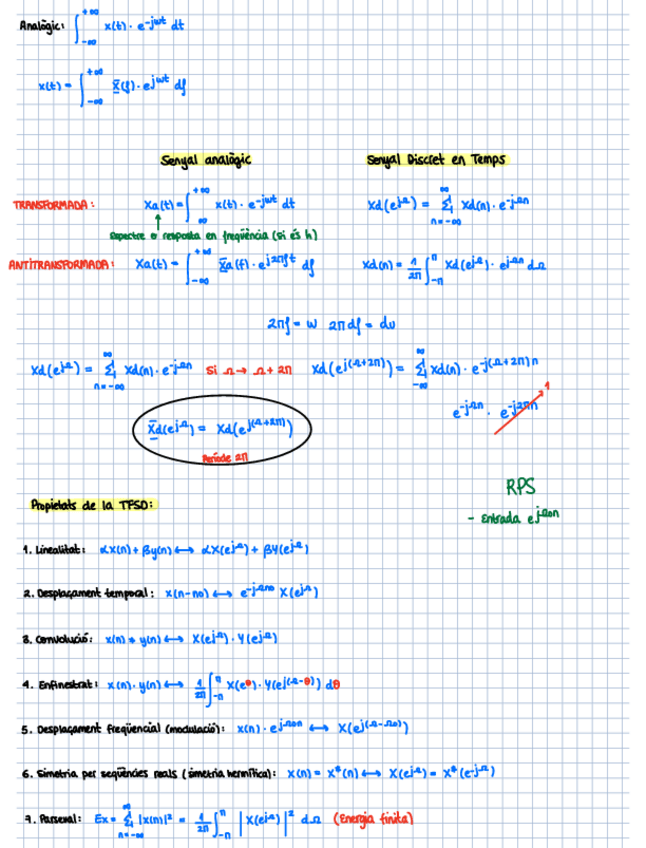 Analògic: ∫_{-∞}^{+∞} x(t) · e^{-jωt} dt
x(t) = ∫_{-∞}^{+∞} X(f) · e^{jωt} df
Senyal analògic Senyal Discret en Temps
TRANSFORMADA: Xa(t) = ∫_{∞}^{+∞} x(t) · e^{-jωt} dt Xd(e^{jΩ}) = Σ_{n=-∞}^{∞} Xd(n) · e^{-jΩn}
Espectre o resposta en freqüència (si és h)
ANTITRANSFORMADA: Xa(t) = ∫_{-∞}^{+∞} Xa(f) · e^{j2πft} df Xd(n) = 1/2π ∫_{-π}^{π} Xd(e^{jΩ}) · e^{jΩn} dΩ
2πf = ω 2πdf = dω
Xd(e^{jΩ}) = Σ_{n=-∞}^{∞} Xd(n) · e^{-jΩn} Si Ω → Ω + 2π Xd(e^{j(Ω+2π)}) = Σ_{-∞}^{∞} Xd(n) · e^{-j(Ω+2π)n}
e^{-jΩn} · e^{-j2πn} 1
Xd(e^{jΩ}) = Xd(e^{j(Ω+2π)})
Període 2π
RPS
- Entrada e^{jΩon}
Propietats de la TFSD:
1. Linealitat: αx(n) + βy(n) ↔ αX(e^{jΩ}) + βY(e^{jΩ})
2. Desplaçament temporal: x(n-no) ↔ e^{-jΩno} X(e^{jΩ})
3. Convolució: x(n) * y(n) ↔ X(e^{jΩ}) · Y(e^{jΩ})
4. Enfinestrat: x(n) · y(n) ↔ 1/2π ∫_{-π}^{π} X(e^{θ}) · Y(e^{j(Ω-θ)}) dθ
5. Desplaçament freqüencial (modulació): x(n) · e^{jΩon} ↔ X(e^{j(Ω-Ωo)})
6. Simetria per seqüències reals (simetria hermítica): x(n) = x*(n) ↔ X(e^{jΩ}) = X*(e^{-jΩ})
7. Parseval: Ex = Σ_{n=-∞}^{∞} |x(n)|² = 1/2π ∫_{-π}^{π} |X(e^{jΩ})|² dΩ (Energia finita)